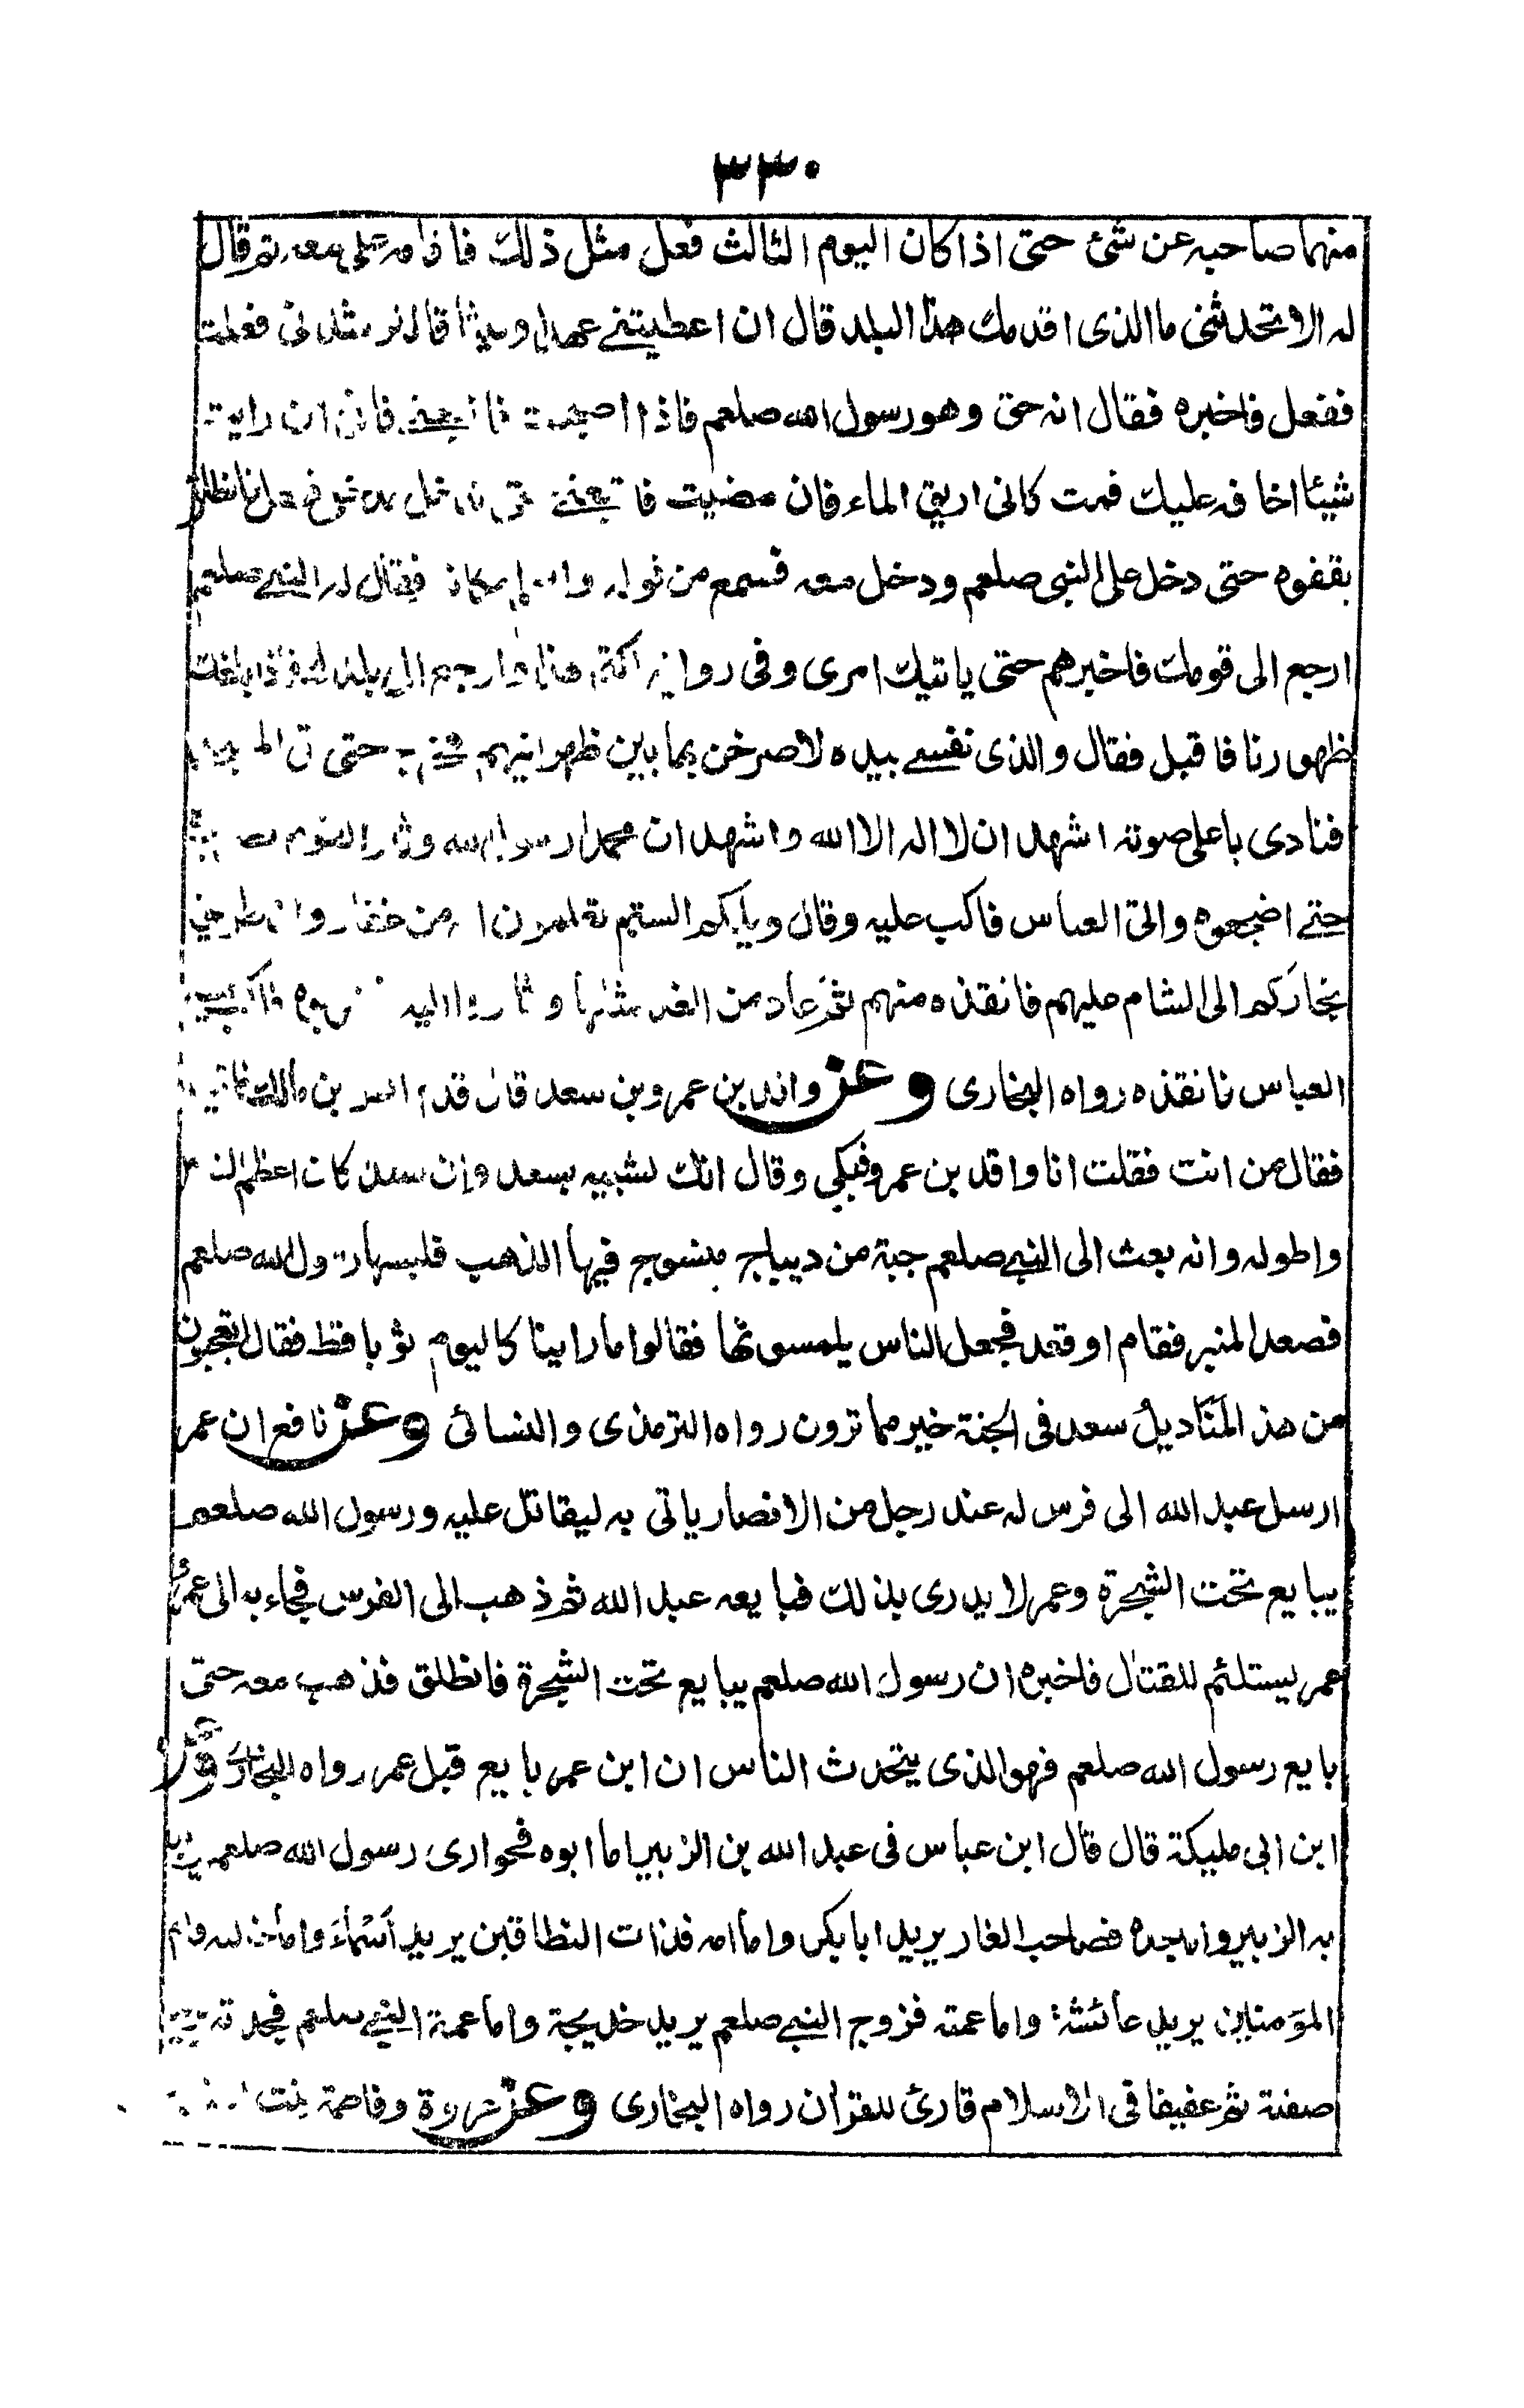 ٣٣٠
منهما صاحبه عن شئ حتى اذا كان اليوم الثالث فعل مثل ذلك فاقامه على معه ثم قال
له الا تحدثنى ما الذى اقدمك هذا البلد قال ان اعطيتنے عهدا وميثاقا لترشدننى فعلت
ففعل فاخبره فقال انه حق وهو رسول الله صلعم فاذا اصبحت فاتبعنے فانى ان رايت
شيئا اخافه عليك قمت كانى اريق الماء فان مضيت فاتبعنے حتى تدخل مدخلى ففعل فانطلق
يقفوه حتى دخل على النبى صلعم ودخل معه فسمع من قوله واسلم مكانه فقال له النبے صلعم
ارجع الى قومك فاخبرهم حتى ياتيك امرى وفى رواية اكتم هذا وارجع الى بلدك فاذا بلغك
ظهورنا فاقبل فقال والذى نفسے بيده لاصرخن بها بين ظهرانيهم فخرج حتى اتى المسجد
فنادى باعلى صوته اشهد ان لا اله الا الله واشهد ان محمدا رسول الله وثار القوم
حتے اضجعوه واتى العباس فاكب عليه وقال ويلكم الستم تعلمون انه من غفار وان طريق
تجاركم الى الشام عليهم فانقذه منهم ثم عاد من الغد بمثلها وثاروا اليه فضربوه فاكب عليه
العباس فانقذه رواه البخارى وعن واقد بن عمرو بن سعد قال قدم انس بن مالك فاتيته
فقال من انت فقلت انا واقد بن عمرو فبكى وقال انك لشبيه بسعد وان سعدا كان اعظم الناس
واطوله وانه بعث الى النبے صلعم جبة من ديباج منسوج فيها الذهب فلبسها رسول الله صلعم
فصعد المنبر فقام او قعد فجعل الناس يلمسونها فقالوا ما راينا كاليوم ثوبا قط فقال اتعجبون
من هذ المناديل سعد فى الجنة خير مما ترون رواه الترمذى والنسائى وعن نافع ان عمر
ارسل عبد الله الى فرس له عند رجل من الانصار ياتى به ليقاتل عليه ورسول الله صلعم
يبايع تحت الشجرة وعمر لا يدرى بذلك فبايعه عبد الله ثم ذهب الى الفرس فجاء به الى عمر
عمر يستلئم للقتال فاخبره ان رسول الله صلعم يبايع تحت الشجرة فانطلق فذهب معه حتى
بايع رسول الله صلعم فهو الذى يتحدث الناس ان ابن عمر بايع قبل عمر رواه البخارى وعن
ابن ابى مليكة قال قال ابن عباس فى عبد الله بن الزبير اما ابوه فحوارى رسول الله صلعم يريد
به الزبير واما جده فصاحب الغار يريد ابا بكر واما امه فذات النطاقين يريد اسماء واما خالته فام
المؤمنين يريد عائشة واما عمته فزوج النبے صلعم يريد خديجة واما عمة النبے صلعم فجدته يريد
صفية ثم عفيفا فى الاسلام قارئ للقران رواه البخارى وعن عروة وفاطمة بنت